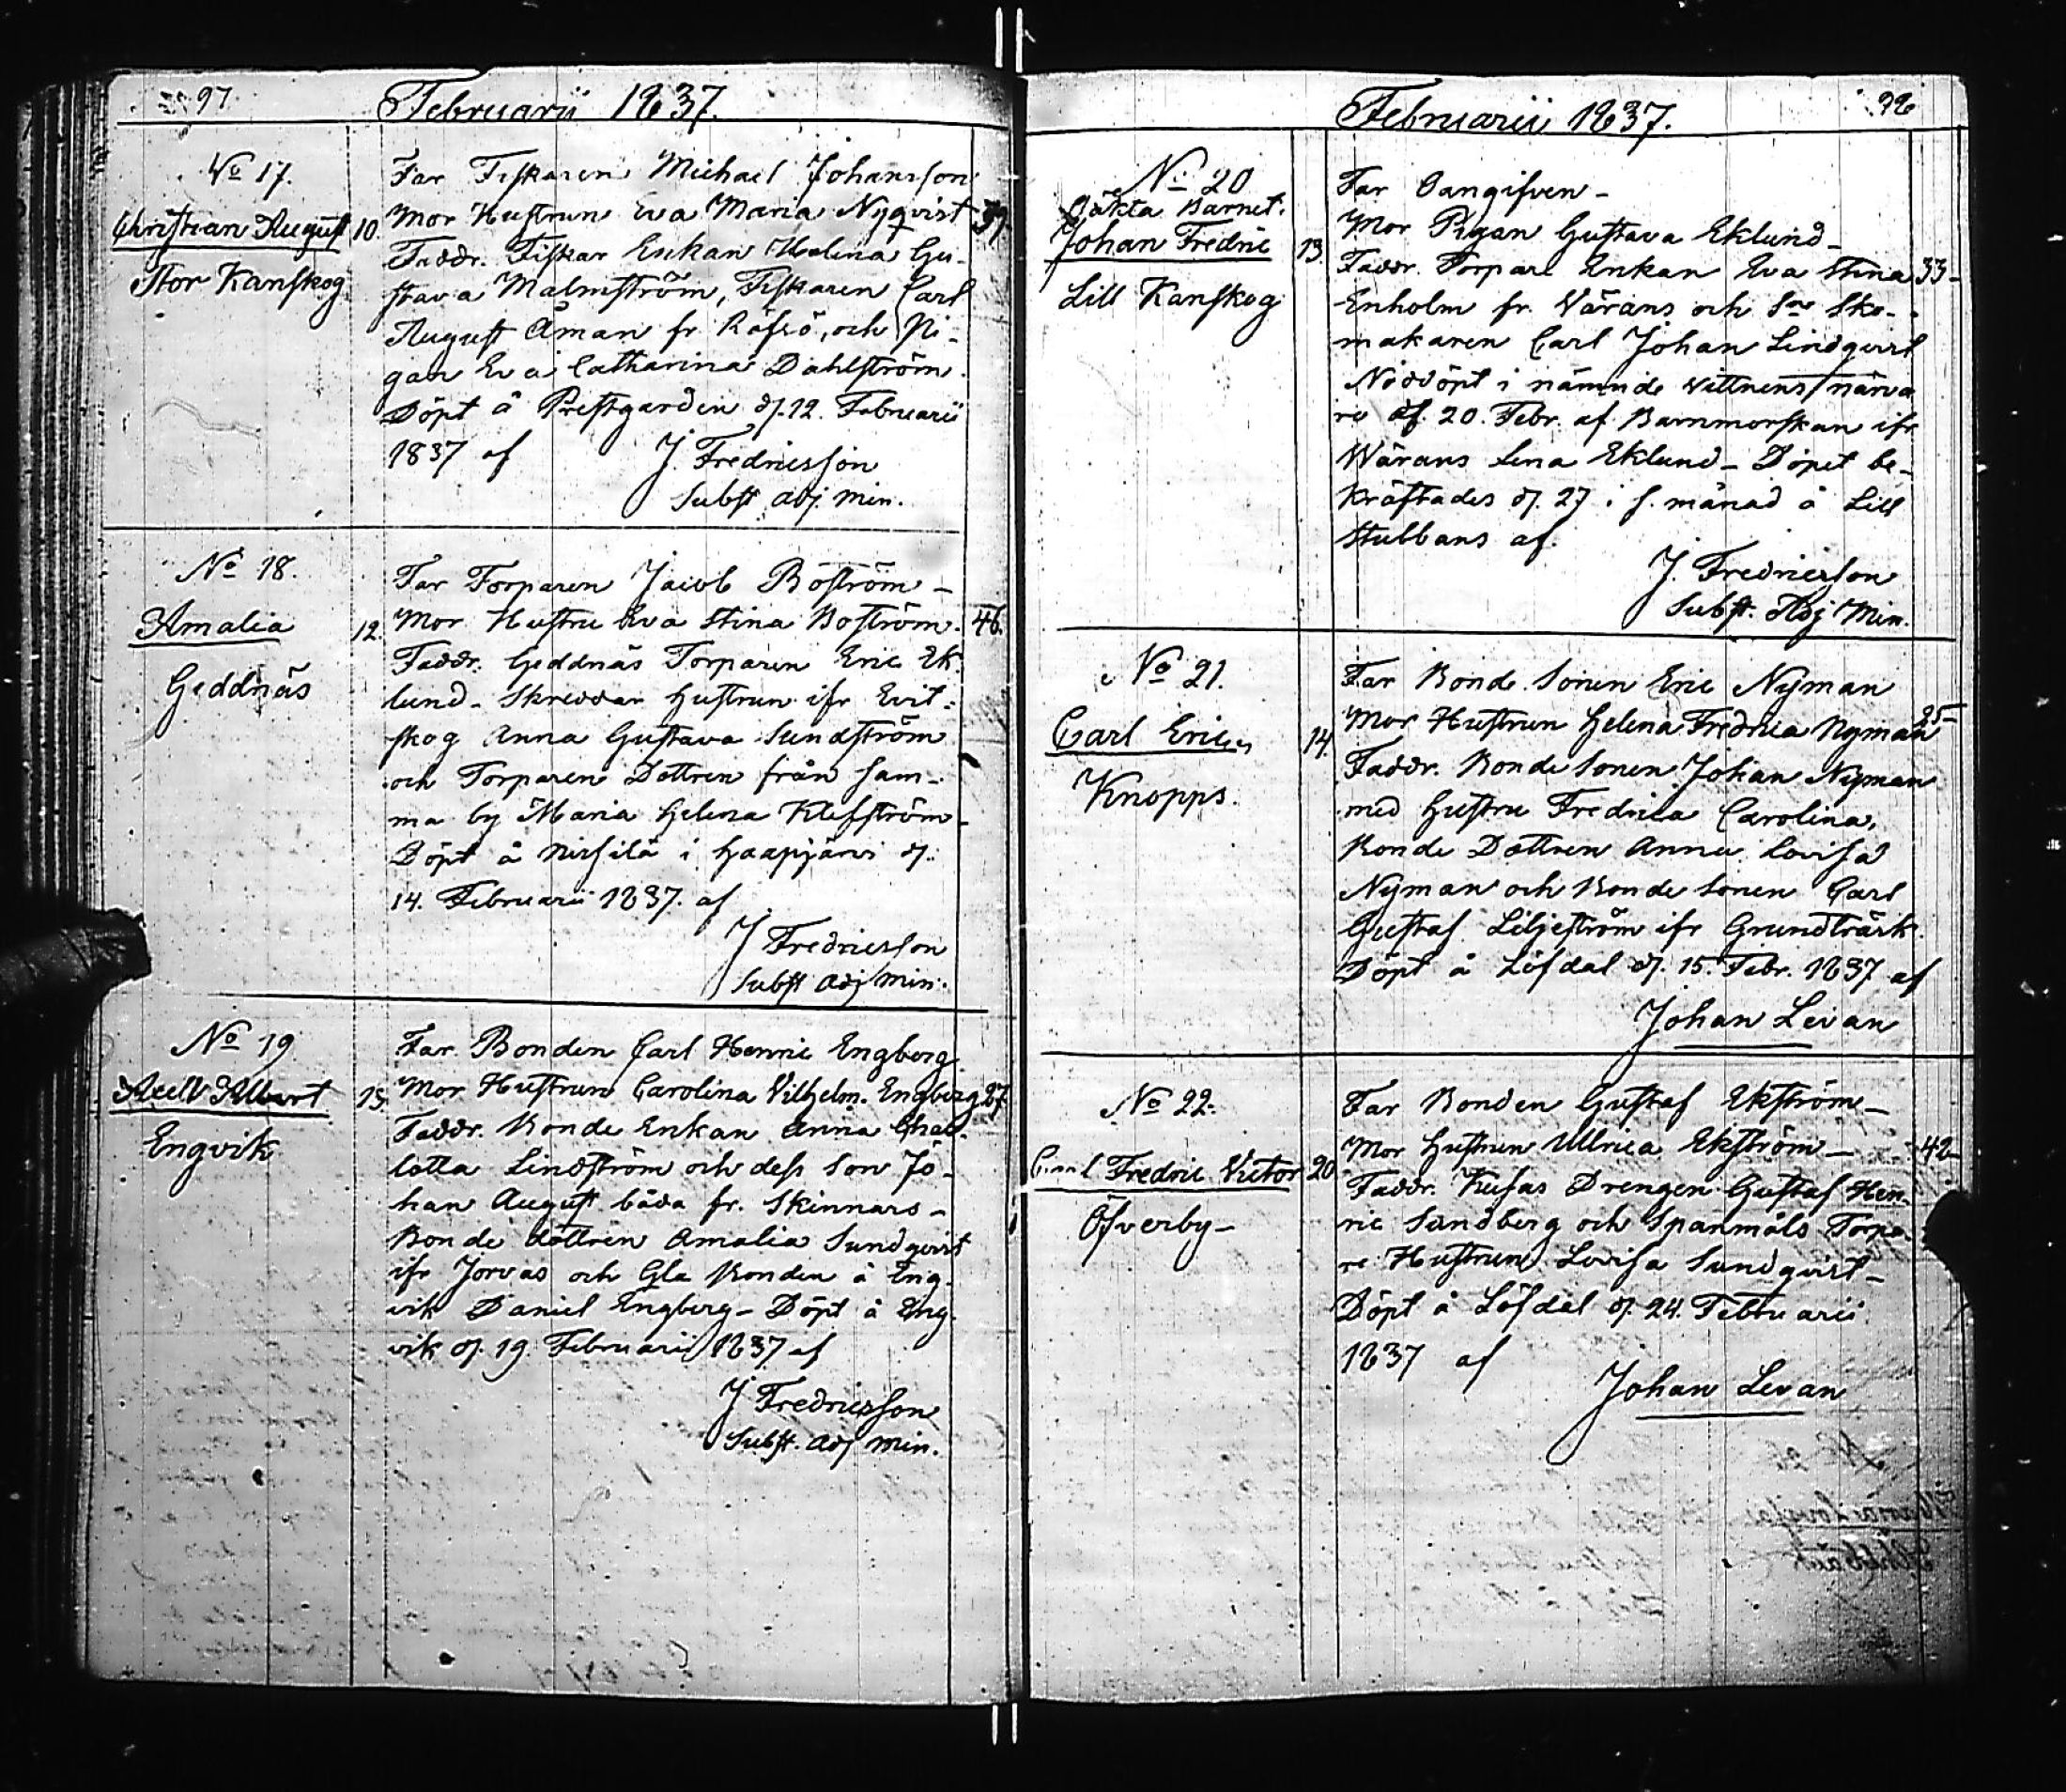 97
Februarii 1837.
No 17.
Christian August
Stor Kanskog
10.
Far Fiskaren Michael Johansson
Mor Hustrun Eva Maria Nyqvist
39.
Faddr. Fiskar Enkan Helena Gu-
stava Malmström, Fiskaren Carl
August Åman fr. Räfsö, och Pi-
gan Eva Catharina Dahlström.
Döpt å Prestgarden d. 12. Februarii
1837 af
J. Fredricsson
Subst adj. min.
No 18.
Amalia
Geddnäs
12.
Far Torparen Jacob Boström -
Mor Hustru Eva Stina Boström.
46.
Faddr. Geddnäs Torparen Eric Ek-
lund - Skreddar Hustrun ifr Evit-
skog Anna Gustava Sundström
och Torparen Dottren från sam-
ma by Maria Helena Klefström -
Döpt å Nissilä i Haapjärvi d.
14. Februarii 1837. af
J Fredricsson
Subst adj min.
No 19
Axel Albert
Engvik
15.
Far Bonden Carl Henric Engberg
Mor Hustrun Carolina Vilhelm. Engberg
27
Faddr. Bonde Enkan Anna Char-
lotta Lindström och dess Son Jo-
han August båda fr. Skinnars -
Bonde dottren Amalia Sundqvist
ifr Jorvas och Gla Bonden å Eng-
vik Daniel Engberg - Döpt å Eng-
vik d. 19 Februarii 1837 af
J Fredricsson
Subst. adj min.
98
Februarii 1837.
No 20
Oäkta Barnet.
Johan Fredric
Lill Kanskog
13.
Far Oangifven -
Mor Pigan Gustava Eklund -
Faddr. Torpare Enkan Eva Stina
33 -
Enholm fr. Värans och Sne Sko-
makaren Carl Johan Lindqvist
Nöddöpt i nämnde vittnens närva
ro d. 20. Febr. af Barnmorskan ifr
Wärans Lena Eklund - Döpet be-
kräftades d. 27 i s. månad å Lill
Stubbans af
J. Fredricsson
Subst. Adj Min.
No 21.
Carl Eric
Knopps.
14.
Far Bonde Sonen Eric Nyman
Mor Hustrun Helena Fredrica Nyman
25 -
Faddr. Bonde Sonen Johan Nyman
med Hustru Fredrica Carolina,
Bonde Dottren Anna Lovisa
Nyman och Bonde Sonen Carl
Gustaf Liljeström ifr Grundträsk
Döpt å Löfdal d. 15. Febr. 1837 af
Johan Levan
No 22.
Fredric Victor
Öfverby -
20
Far Bonden Gustaf Ekström -
Mor Hustrun Ullrica Ekström -
42 -
Faddr. Kusas Drengen Gustaf Hen-
ric Sandberg och Spanmåls Torpa-
re Hustrun Lovisa Sundqvist -
Döpt å Löfdal d. 24. Februarii
1837 af
Johan Levan